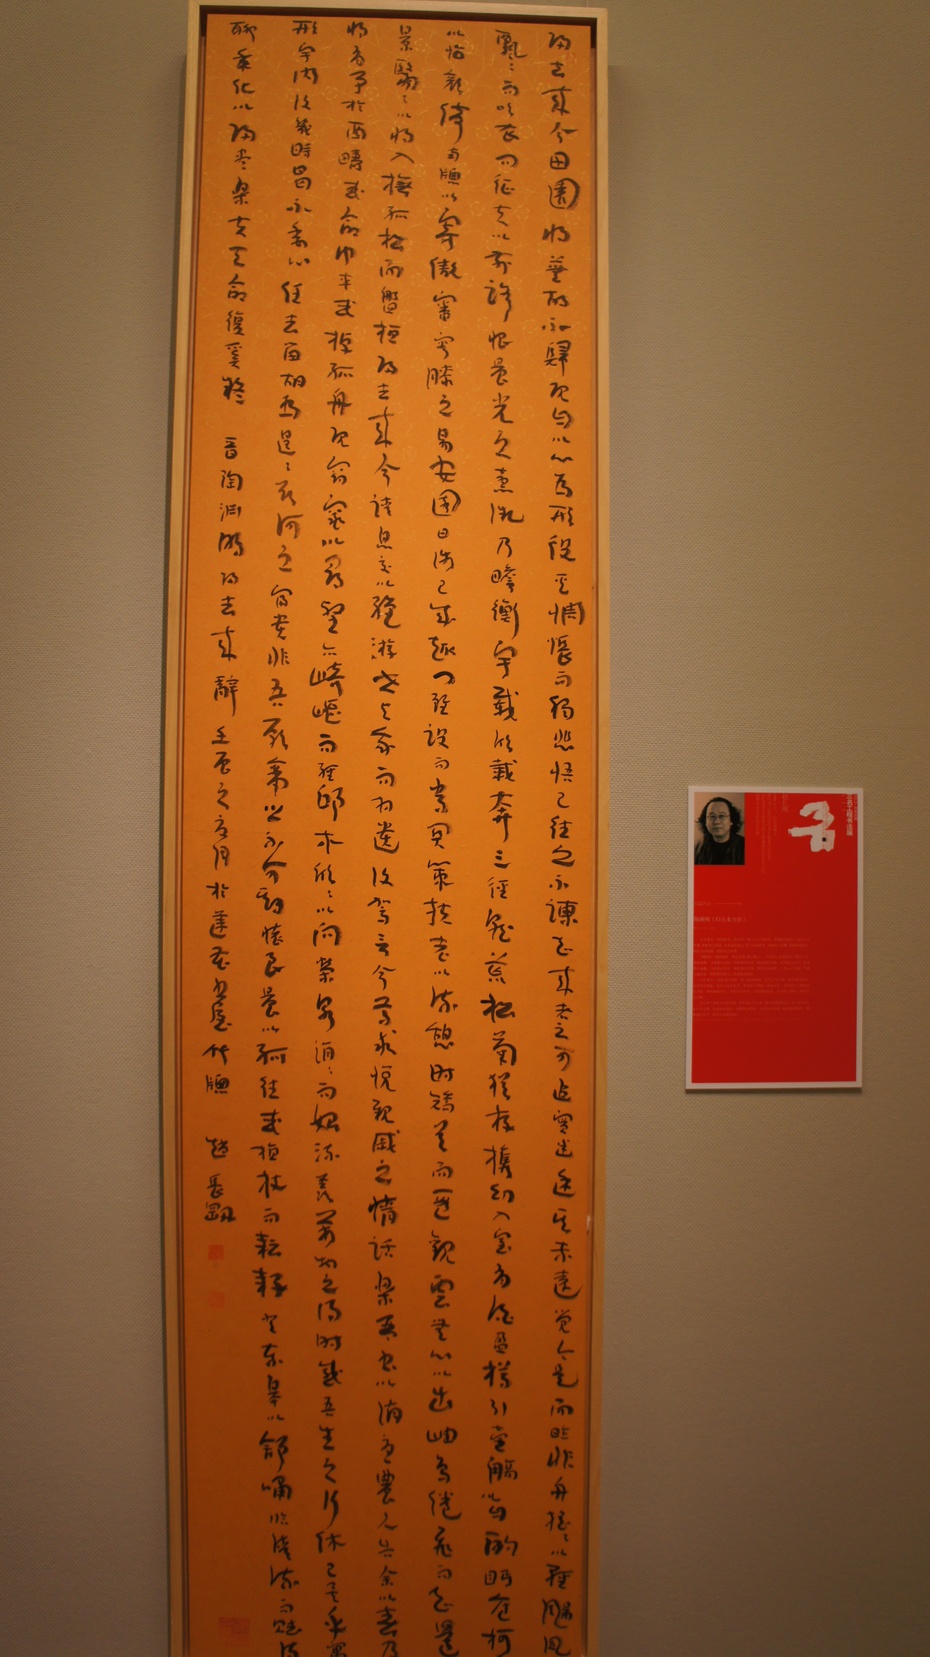 歸去來兮田園將蕪胡不歸既自以心為形役奚惆悵而獨悲悟已往之不諫知來者之可追實迷途其未遠覺今是而昨非舟搖〻以輕颺風
飄〻而吹衣問征夫以前路恨晨光之熹微乃瞻衡宇載欣載奔三徑就荒松菊猶存攜幼入室有酒盈樽引壺觴以自酌眄庭柯
以怡顏倚南牕以寄傲審容膝之易安園日涉已成趣門雖設而常關策扶老以流憩時矯首而遐觀雲無心以出岫鳥倦飛而知還
景翳〻以將入撫孤松而盤桓歸去來兮請息交以絕游世與我而相遺復駕言兮焉求悅親戚之情話樂琴書以消憂農人告余以春及
將有事於西疇或命巾車或棹孤舟既窈窕以尋壑亦崎嶇而經邱木欣〻以向榮泉涓〻而始流羨萬物之得時感吾生之行休已矣乎寓
形宇內復幾時曷不委心任去留胡為遑〻欲何之富貴非吾願帝鄉不可期懷良晨以孤往或植杖而耘耔登東皋以舒嘯臨清流而賦詩
聊乘化以歸盡樂夫天命復奚疑 晉陶淵明歸去來辭 壬辰之月於蓮花書屋竹牕 趙長剛